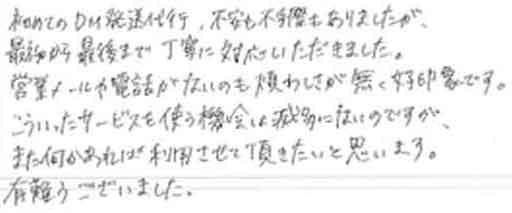 初めてのDM発送代行、不安も不手際もありましたが、
最初から最後まで丁寧に対応いただきました。
営業メールや電話がないのも煩わしさが無く好印象です。
こういったサービスを使う機会は滅多にはないのですが、
また何かあれば利用させて頂きたいと思います。
有難うございました。